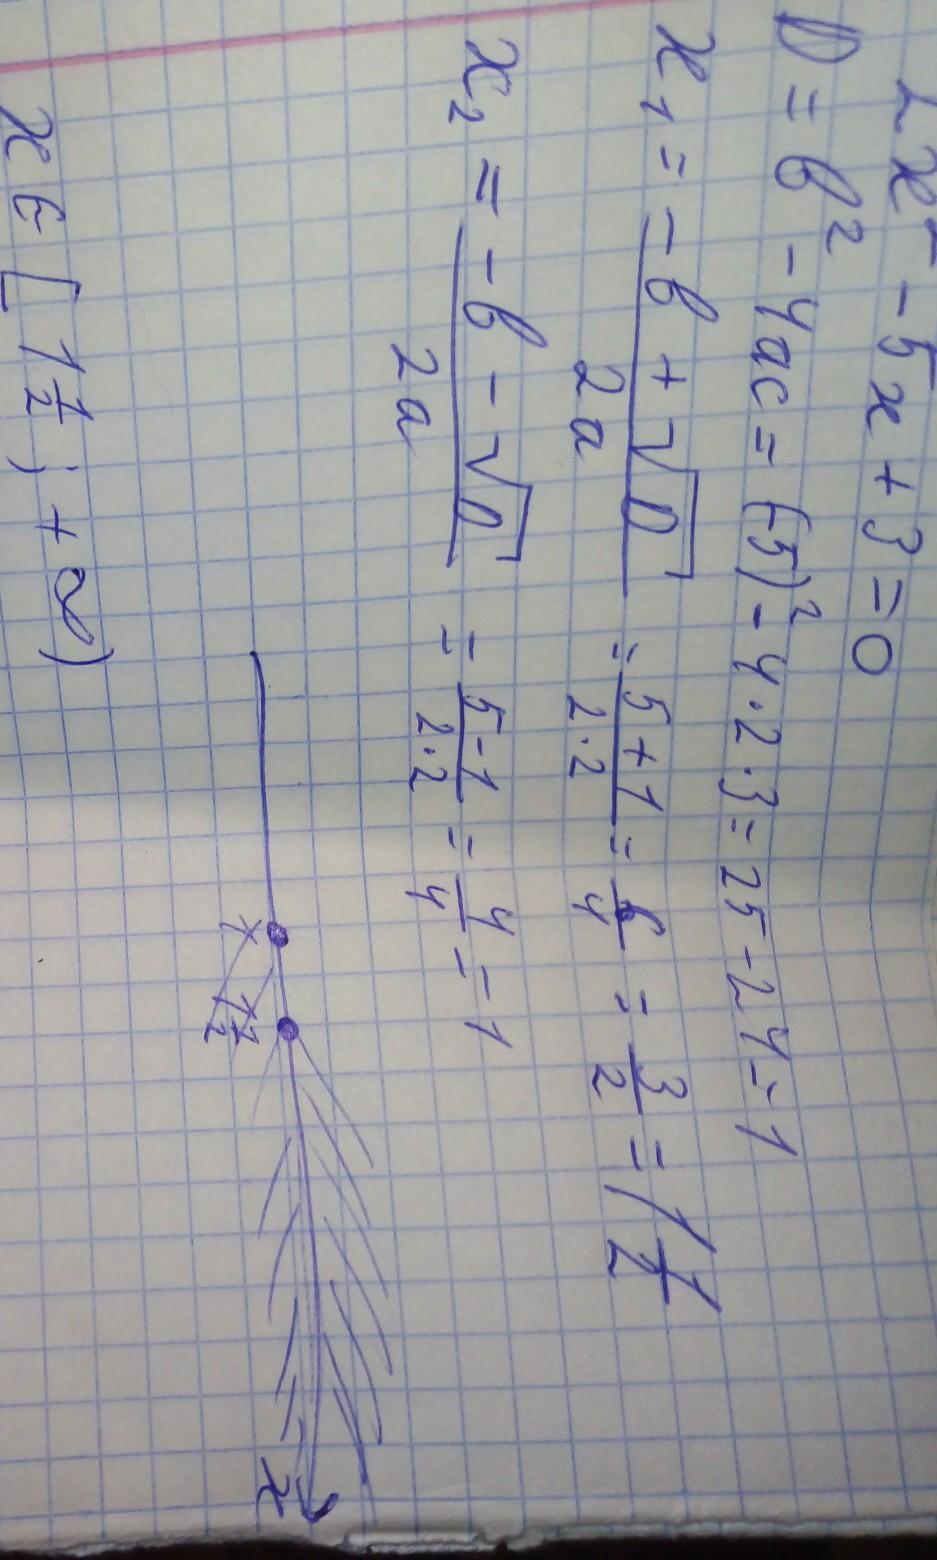 2x² - 5x + 3 = 0
D = b² - 4ac = (-5)² - 4·2·3 = 25 - 24 = 1
x₁ = (-b + √D)/(2a) = (5 + 1)/(2·2) = 6/4 = 3/2 = 1 1/2
x₂ = (-b - √D)/(2a) = (5 - 1)/(2·2) = 4/4 = 1
1 1 1/2 x
x ∈ [1 1/2; +∞)